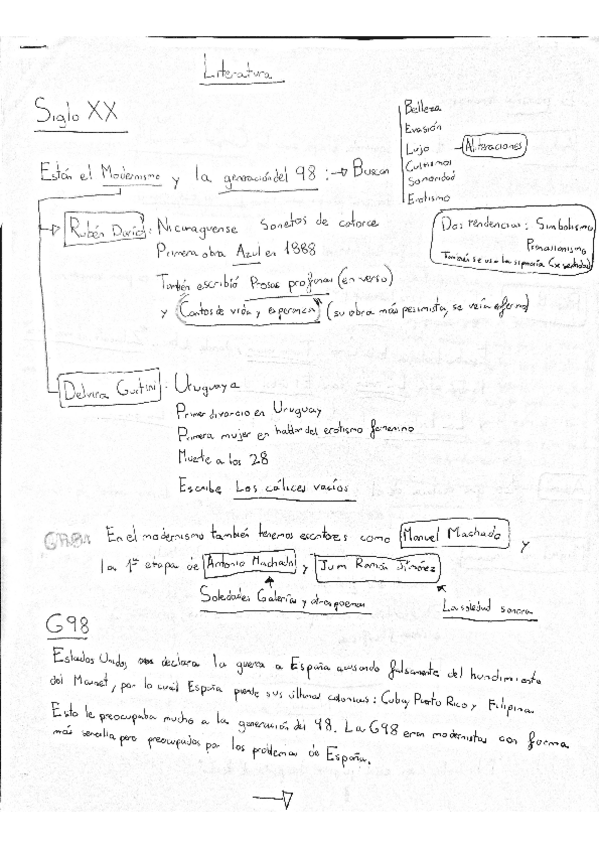 Literatura
Siglo XX
Están el Modernismo y la generación del 98: → Buscan
Belleza
Evasión
Lujo
Cultismos
Sonoridad
Erotismo
Aliteraciones
Rubén Darío: Nicuraguense Sonetos de catorce
Primera obra Azul en 1888
También escribió Prosas profanas (en verso)
y Cantos de vida y esperanza (su obra más pesimista, se veía enfermo)
Dos tendencias: Simbolismo
Parnassionismo
También se usa la
Delmira : Uruguaya
Primer divorcio en Uruguay
Primera mujer en hablar del erotismo femenino
Muerte a los 28
Escribe Los cálices vacíos
En el modernismo también tenemos escritores como Manuel Machado y
la 1ª etapa de Antonio Machado y Juan Ramón Jiménez
Soledades Galerías y otros poemas
La soledad sonora
G98
Estados Unidos declara la guerra a España acusando falsamente del hundimiento
del , por lo cual España pierde sus últimas colonias: Cuba, Puerto Rico y Filipinas
Esto le preocupaba mucho a la generación del 98. La G98 eran modernistas con forma
más sencilla pero preocupados por los problemas de España.